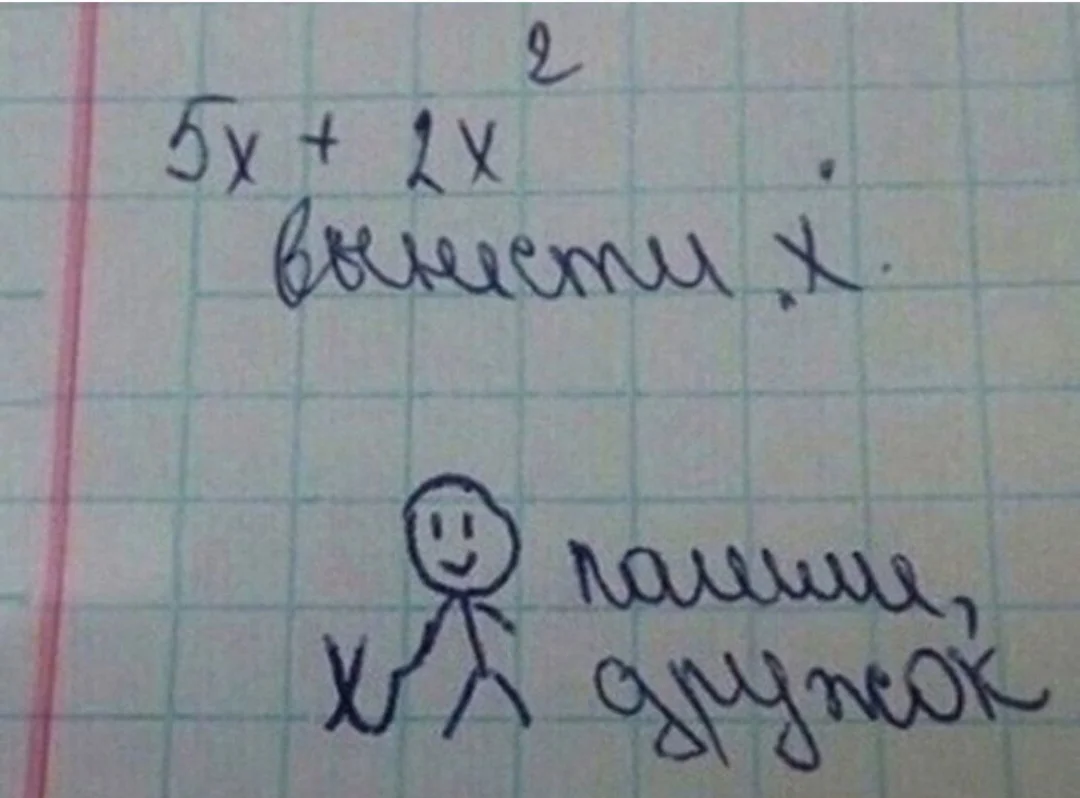 5x + 2x²
вынести x.
пошли,
дружок
x